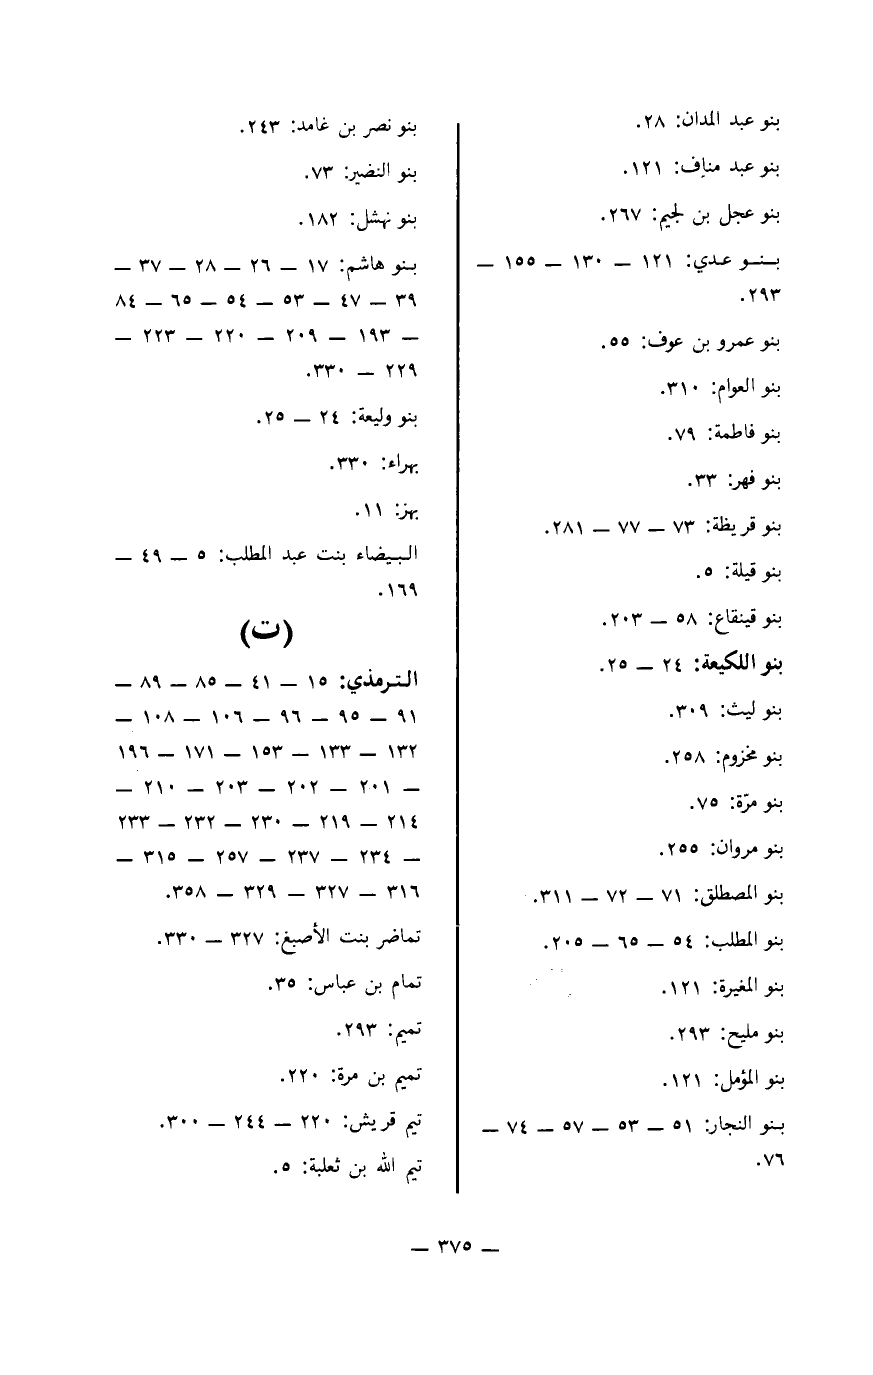 بنو عبد المدان: ٢٨.
بنو عبد مناف: ١٢١.
بنو عجل بن لجيم: ٢٦٧.
بنو عدي: ١٢١ — ١٣٠ — ١٥٥ —
٢٩٣.
بنو عمرو بن عوف: ٥٥.
بنو العوام: ٣١٠.
بنو فاطمة: ٧٩.
بنو فهر: ٣٣.
بنو قريظة: ٧٣ — ٧٧ — ٢٨١.
بنو قيلة: ٥.
بنو قينقاع: ٥٨ — ٢٠٣.
بنو اللكيعة: ٢٤ — ٢٥.
بنو ليث: ٣٠٩.
بنو مخزوم: ٢٥٨.
بنو مرّة: ٧٥.
بنو مروان: ٢٥٥.
بنو المصطلق: ٧١ — ٧٢ — ٣١١.
بنو المطلب: ٥٤ — ٦٥ — ٢٠٥.
بنو المغيرة: ١٢١.
بنو مليح: ٢٩٣.
بنو المؤمل: ١٢١.
بنو النجار: ٥١ — ٥٣ — ٥٧ — ٧٤ —
٧٦.
بنو نصر بن غامد: ٢٤٣.
بنو النضير: ٧٣.
بنو نهشل: ١٨٢.
بنو هاشم: ١٧ — ٢٦ — ٢٨ — ٣٧ —
٣٩ — ٤٧ — ٥٣ — ٥٤ — ٦٥ — ٨٤
— ١٩٣ — ٢٠٩ — ٢٢٠ — ٢٢٣ —
٢٢٩ — ٣٣٠.
بنو وليعة: ٢٤ — ٢٥.
بهراء: ٣٣٠.
بهز: ١١.
البيضاء بنت عبد المطلب: ٥ — ٤٩ —
١٦٩.
(ت)
الترمذي: ١٥ — ٤١ — ٨٥ — ٨٩ —
٩١ — ٩٥ — ٩٦ — ١٠٦ — ١٠٨ —
١٣٢ — ١٣٣ — ١٥٣ — ١٧١ — ١٩٦
— ٢٠١ — ٢٠٢ — ٢٠٣ — ٢١٠ —
٢١٤ — ٢١٩ — ٢٣٠ — ٢٣٢ — ٢٣٣
— ٢٣٤ — ٢٣٧ — ٢٥٧ — ٣١٥ —
٣١٦ — ٣٢٧ — ٣٢٩ — ٣٥٨.
تماضر بنت الأصبغ: ٣٢٧ — ٣٣٠.
تمام بن عباس: ٣٥.
تميم: ٢٩٣.
تميم بن مرة: ٢٢٠.
تيم قريش: ٢٢٠ — ٢٤٤ — ٣٠٠.
تيم الله بن ثعلبة: ٥.
— ٣٧٥ —